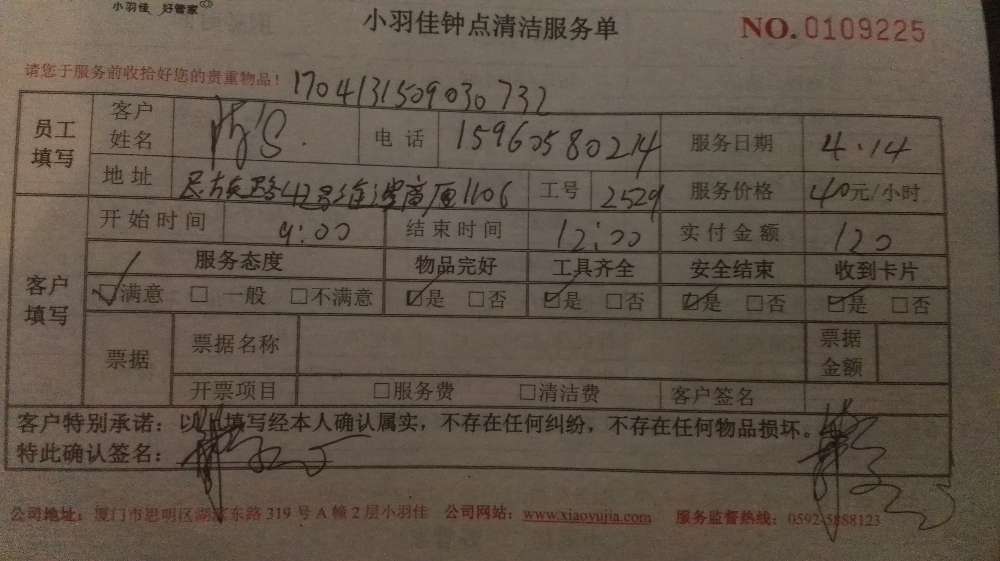 小羽佳 好管家
小羽佳钟点清洁服务单 NO.0109225
请您于服务前收拾好您的贵重物品! 1704131509030732
员工填写 客户姓名 电话 15960580214 服务日期 4.14
地址 民族路42号 高厦1106 工号 2529 服务价格 40元/小时
客户填写 开始时间 9:00 结束时间 12:00 实付金额 120
服务态度 物品完好 工具齐全 安全结束 收到卡片
☑满意 □一般 □不满意 ☑是 □否 ☑是 □否 ☑是 □否 ☑是 □否
票据 票据名称 票据金额
开票项目 □服务费 □清洁费 客户签名
客户特别承诺:以上填写经本人确认属实,不存在任何纠纷,不存在任何物品损坏。
特此确认签名:
公司地址:厦门市思明区湖滨东路319号A幢2层小羽佳 公司网站:www.xiaoyujia.com 服务监督热线:0592-5888123